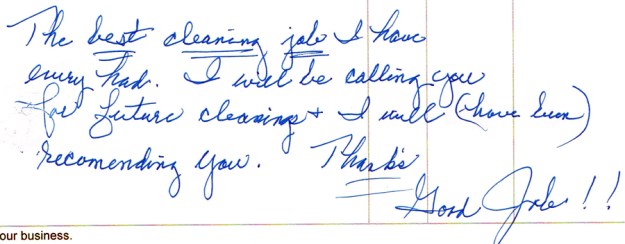 The best cleaning job I have
every had. I will be calling you
for future cleanings + I will (have been)
recomending you. Thanks
Good Job!!
our business.